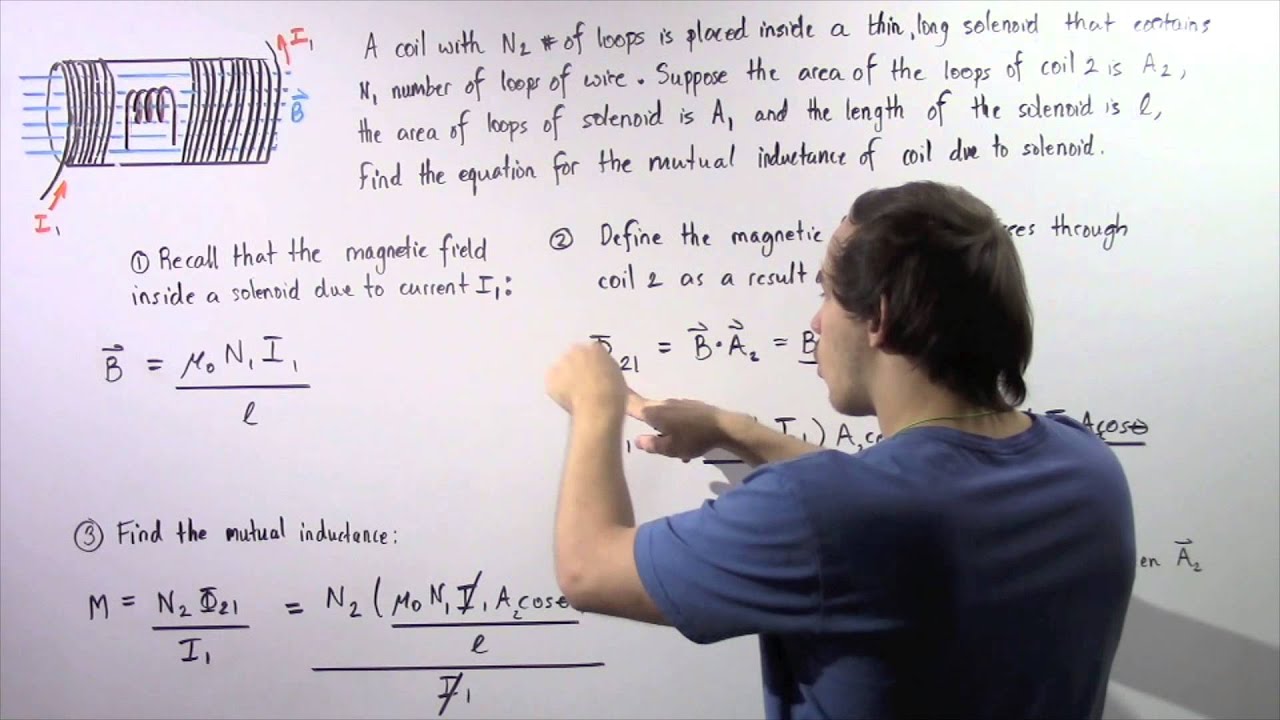 I₁
B⃗
I₁
A coil with N₂ # of loops is placed inside a thin, long solenoid that contains
N₁ number of loops of wire. Suppose the area of the loops of coil 2 is A₂,
the area of loops of solenoid is A₁ and the length of the solenoid is ℓ,
Find the equation for the mutual inductance of coil due to solenoid.
① Recall that the magnetic field
inside a solenoid due to current I₁:
B⃗ = μ₀ N₁ I₁
ℓ
② Define the magnetic through
coil 2 as a result
Φ₂₁ = B⃗·A⃗₂ = B
I₁) A₂ A₂cosθ
A⃗₂
③ Find the mutual inductance:
M = N₂ Φ₂₁ = N₂ (μ₀ N₁ I₁ A₂cosθ
I₁ ℓ
I₁